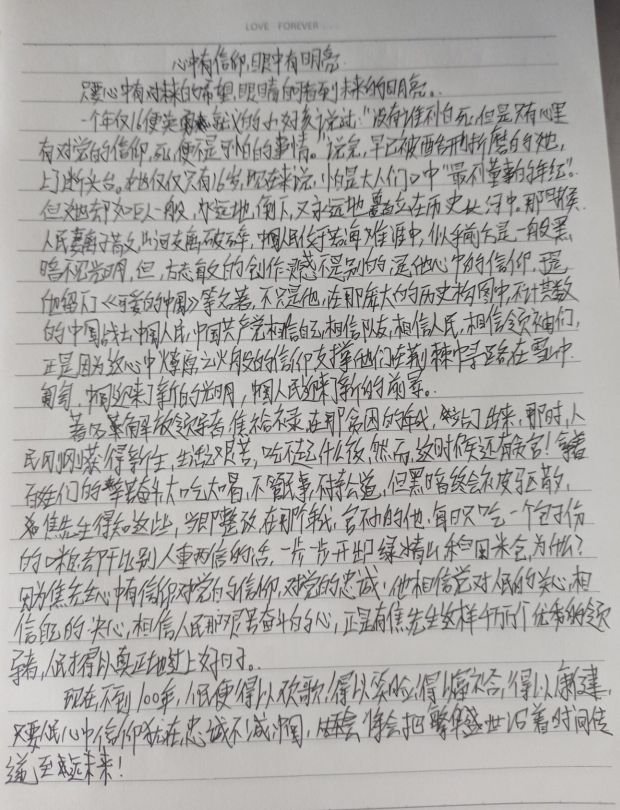 LOVE · FOREVER ...
心中有信仰,眼中有明亮
只要心中有对未来的希望,眼睛才可看到未来的明亮。
一个年仅16便英勇就义的小女孩说过:“没有谁不怕死,但是只有心里
有对党的信仰,死,便不是可怕的事情。”说完,早已被酷刑折磨的她,
上了断头台。她仅仅只有16岁,现在来说,怕是大人们口中“最不董事的年纪”。
但她却如巨人一般,永远地,倒下,又永远地矗立在历史长河中。那时候
人民妻离子散,山河支离破碎,中国人民俘于苦海难涯中,似乎前方是一般黑
暗不见光明,但,方志敏的创作灵感不是别的,是他心中的信仰,于是
他留下了《可爱的中国》等名著,不只是他,在那庞大的历史构图中,不计其数
的中国战士,中国人民,中国共产党相信自己,相信队友,相信人民,相信领袖们,
正是因为这心中燎原之火般的信仰支撑他们在荆棘中 在雪中
匍匐,中国迎来了新的光明,中国人民迎来了新的前景。
著名革命解放领导者,焦裕禄,在那贫困的年代, 出来,那时,人
民刚刚获得新生,生活还艰苦,吃不起什么饭,然而,这时候还有贪官!拿着
百姓们的 大吃大喝,不管民事,不讲公道,但黑暗终会被驱散,
焦先生得知这些,当即整改,在那个年代,官不小的他,每日只吃一个包子份
的口粮,却干比别人重两倍的活,一步一步开出绿晴山和田米仓,为什么?
因为焦先生心中有信仰,对党的信仰,对党的忠诚,他相信党对人民的关心,相
信自己的决心,相信人民那艰苦奋斗的心,正是有焦先生这样千万个优秀的领
导者,人民才得以真正地过上好日子。
现在,不到100年,人民便得以欢歌,得以 ,得以 ,得以康健,
只要人民心中信仰犹在,忠诚不减,中国, 将会把繁华盛世沿着时间传
递至 未来!